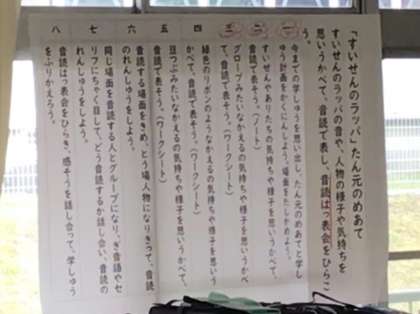 「すいせんのラッパ」たん元のめあて
すいせんのラッパの音や、人物の様子や気持ちを
思いうかべて、音読で表し、音読はっ表会をひらこ
う。
一
今までの学しゅうを思い出し、たん元のめあてと学し
ゅう計画をかくにんしよう。場面をたしかめよう。
二
すいせんやありたちの気持ちや様子を思いうかべて、
音読で表そう。(ノート)
三
グローブみたいなかえるの気持ちや様子を思いうかべ
て、音読で表そう。(ワークシート)
四
緑色のリボンのようなかえるの気持ちや様子を思いう
かべて、音読で表そう。(ワークシート)
五
豆つぶみたいなかえるの気持ちや様子を思いうかべて、
音読で表そう。(ワークシート)
六
音読する場面をきめ、とう場人物になりきって、音読
のれんしゅうをしよう。
七
同じ場面を音読する人とグループになり、ぎ音語やセ
リフにちゃく目して、どう音読するか話し合い、音読の
れんしゅうをしよう。
八
音読はっ表会をひらき、感そうを話し合って、学しゅう
をふりかえろう。